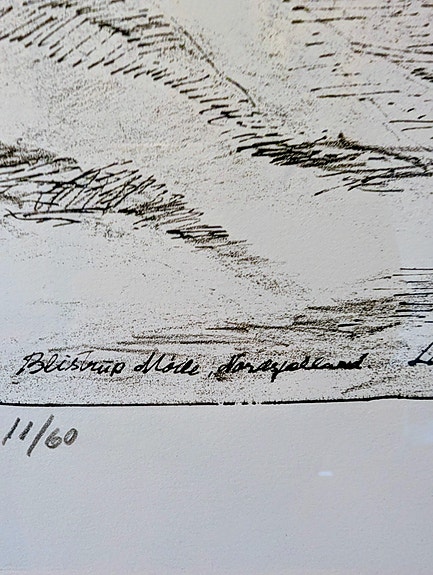 Blistrup Mølle, Nordsjælland.
11/60